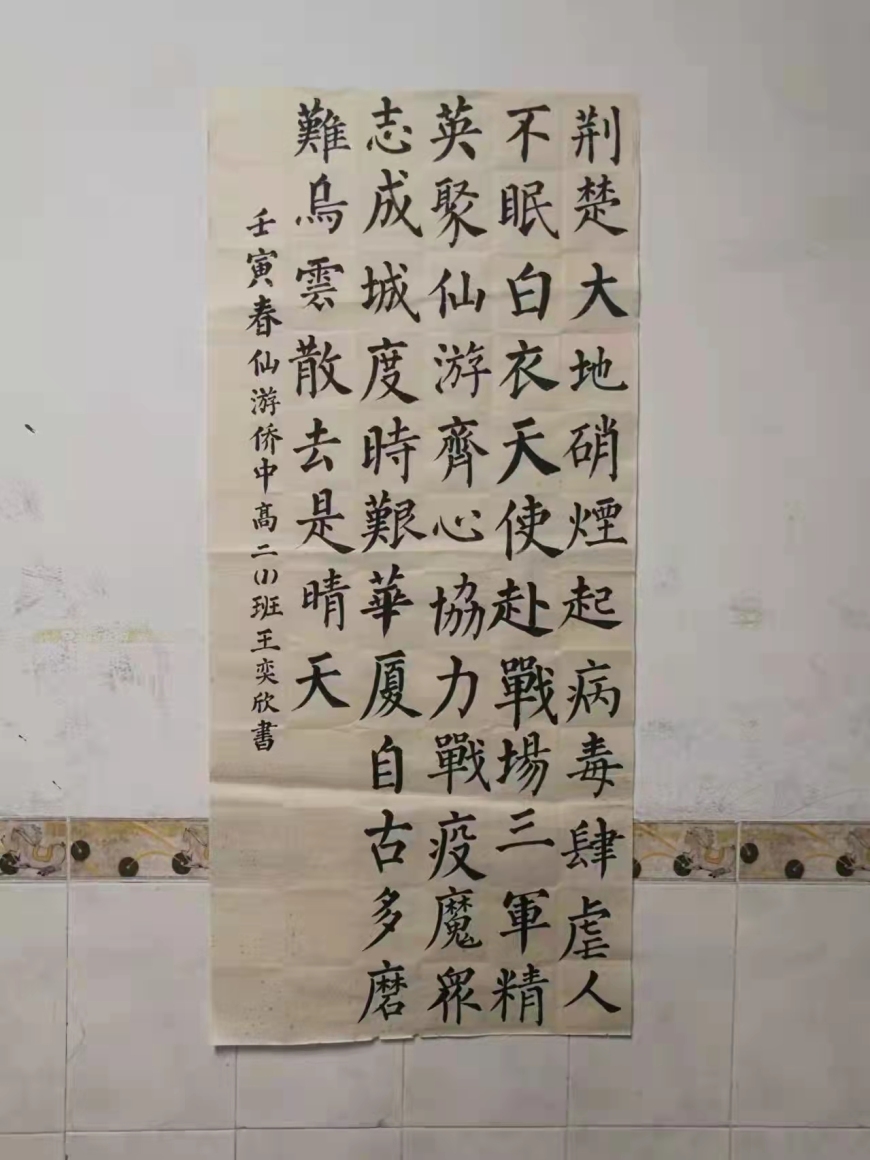 荆楚大地硝煙起病毒肆虐人
不眠白衣天使赴戰場三軍精
英聚仙游齊心協力戰疫魔眾
志成城度時艱華厦自古多磨
難烏雲散去是晴天
壬寅春仙游侨中高二(1)班王奕欣書